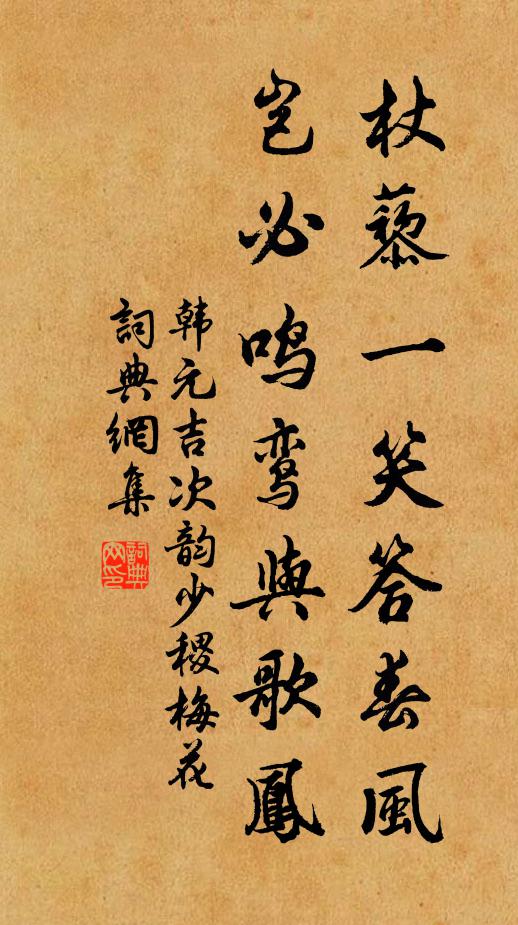 杖藜一笑答春風
豈必鸣鸾與歌鳳
韩元吉次韵少稷梅花
詞典網集
詞典
网印